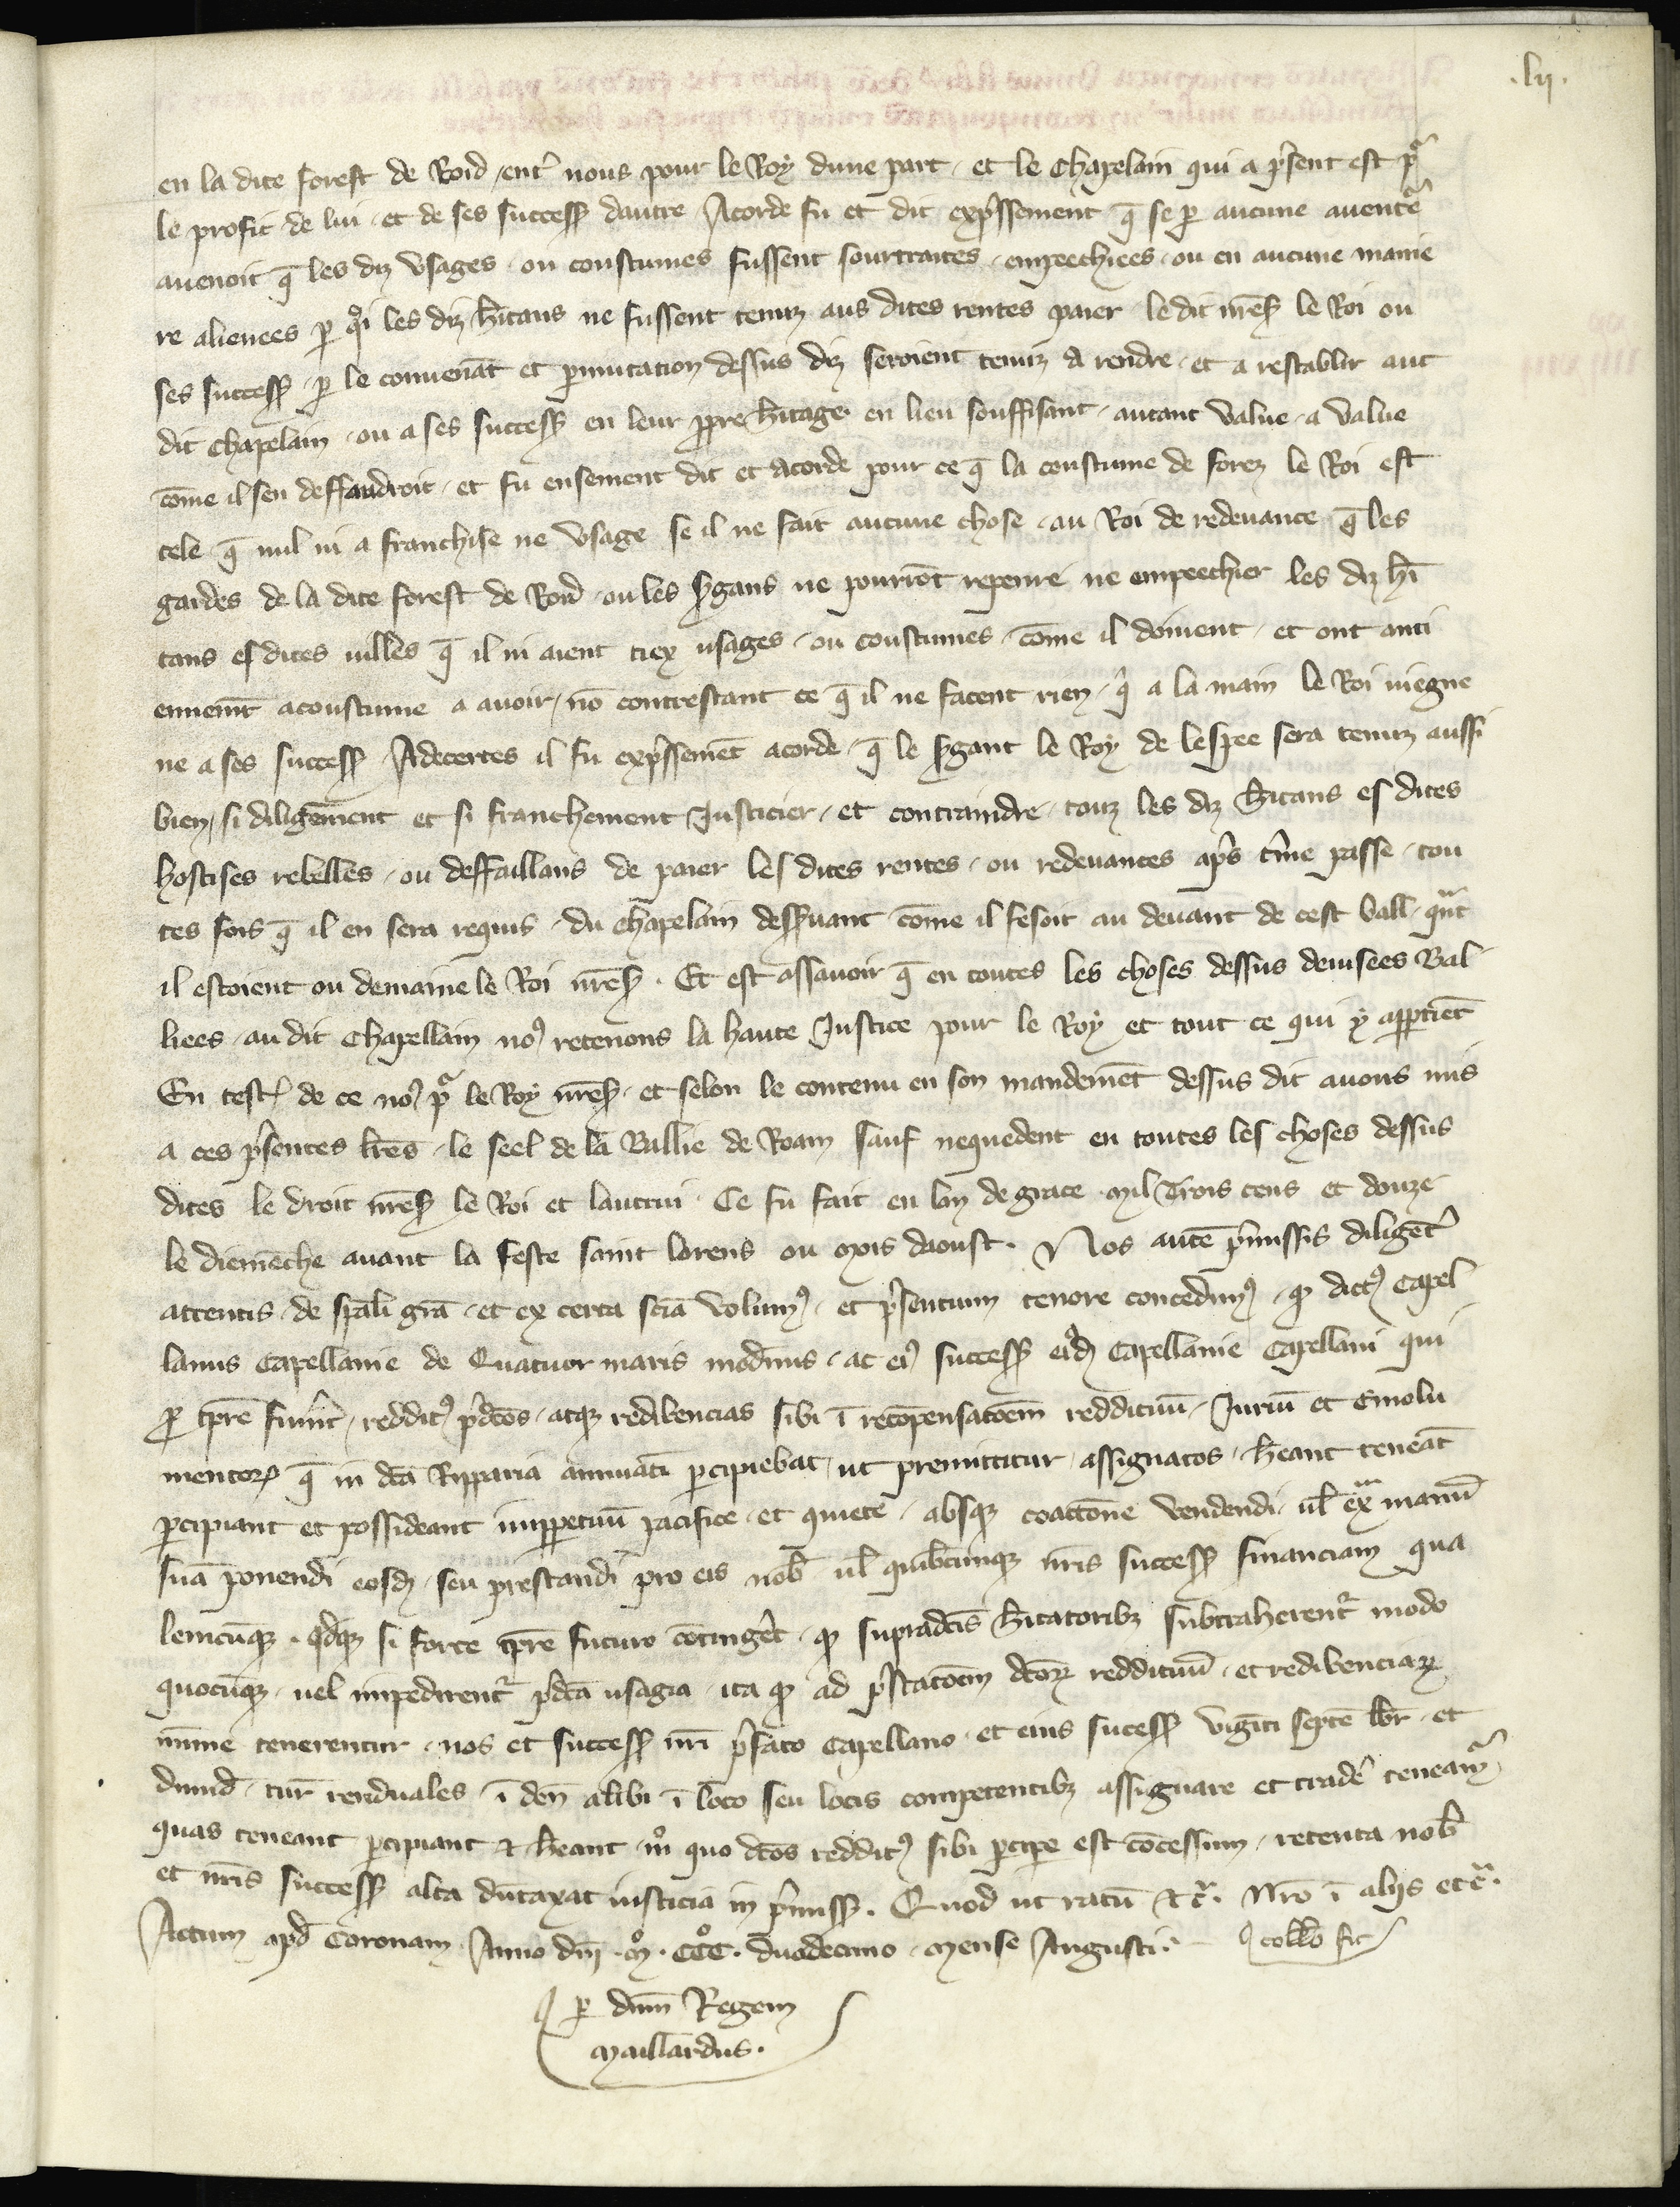 .lii.
en la dite forest de Roid entr̾ nous pour le Roy dune part et le chapelain qui a p̾sent est pᷓ
le profit de lui et de ses success̃ dautre Acorde fu et dit exp̾ssement q̄ se ꝑ aucune auentᷓe
auenoit q̄ les diz vsages ou coustumes fussent sourtraites empeechiees ou en aucune manie
re alienees ꝑ qͦi les diz h̄itans ne fussent tenuz aus dites rentes paier le dit nr̄es̾ le Roi ou
ses success̃ ꝑ le conuenāt et ꝑmutacion dessus diz seroient tenuz a rendre et a restablir aut
dit chapelain ou a ses success̃ en leur ꝓpre h̄itage en lieu souffisant autant value a value
cōme il sen deffaudroit et fu ensement dit et acorde pour ce q̄ la coustume de forez le Roi est
tele q̄ nul ni a franchise ne vsage se il ne fait aucune chose au Roi de redeuance q̄ les
gardes de la dite forest de Roid ou les s̾gans ne pouriōt repenre ne empeechier les diz h̄i
tans es dites uilles q̄ il ni aient tiex usages ou coustumes cōme il doiuent et ont anci
ennemt̄ acoustume a auoir nō contrestant ce q̄ il ne facent rien qͥ a la main le Roi uiegne
ne a ses success̃ Adecertes il fu exp̾ssemēt acorde q̄ le s̾gant le Roy de lespee sera tenuz aussi
bien si diligēment et si franchement Justicier et contraindre touz les diz h̄itans es dites
hostises rebelles ou deffaillans de paier les dites rentes ou redeuances ap̾s t̾me passe tou
tes fois q̄ il en sera requis du chapelain dess̾uant cōme il fesoit au deuant de cest baill q̃nt
il estoient ou demaine le Roi nr̄es̾. Et est assauoir q̄ en toutes les choses dessus deuisees Bal
liees au dit Chapellain noꝰ retenons la haute Justice pour le Roy et tout ce qui y apꝑtiēt
En test̾ de ce noꝰ pᷓ le Roy nr̄es̾ et selon le contenu en son mandemēt dessus dit auons mis
a ces p̾sentes lr̄es le seel de la Ballie de Roam sauf nequedent en toutes les choses dessus
dites le droit nr̄es̾ le Roi et lautrui Ce fu fait en lan de grace mil Trois cens et douze
le diemēche auant la feste saint lorens ou mois daoust. Nos autē p̾missis diligēt̾
attentis de sp̄ali gr̄a et ex certa scīa volumꝰ et p̾sentium tenore concedimꝰ ꝙ dictꝰ Capel
lanus Capellanie de Quatuor maris modernus ac eiꝰ success̃ eiᵈꝫ Capellanie Capellani qui
ꝓ tp̄re fuer̾nt redditꝰ p̾dc̄os atqꝫ redibencias sibi ī recōpensatōem reddituū Juriū et Emolu
mentoꝝ q̄ in dc̄a Ripparia annuatī ꝑcipiebat ut premittitur assignatos h̄eant teneāt
ꝑcipiant et possideant imꝑpetuū pacifice et quiete absqꝫ coactōne vendendi ul̄ exᷓ manū
suā ponendi eosdꝫ seu prestandi pro eis nob̄ ul̄ quib̄cunqꝫ nr̄is success̃ financiam qua
lemcūqꝫ. qd̾qꝫ si forte tp̄re futuro cōtinger̾t ꝙ supradc̄is h̄itatoribꝫ subtraherent̾ modo
quocūqꝫ uel impedirent̾ p̾dc̄a usagia ita ꝙ ad p̾statōem dc̄oꝝ reddituū et redibenciaꝝ
mi͞me tenerentur nos et success̃ nr̄i p̾fato Capellano et eius sucess̃ viginti septē libr̄ et
dimid̾ tur̄ renduales ī den̄ alibi ī loco seu locis competentibꝫ assignare et trader̾ teneamᷓ
quas teneant ꝑcipiant ⁊ h̄eant mͦ quo dc̄os redditꝰ sibi ꝑcipe est cōcessum retenta nob̄
et nr̄is success̃ alta dūtaxat iusticia in p̾miss̃. Quod ut ratū ⁊cᷓ. Nr̄o ī alijs etcᷓ.
Actum apd̾ Coronam Anno dn̄i .mͦ. CCCͦ. duodecimo mense Augusti. coll̄o fit
ꝑ dnm̄ Regem
Maillardus.